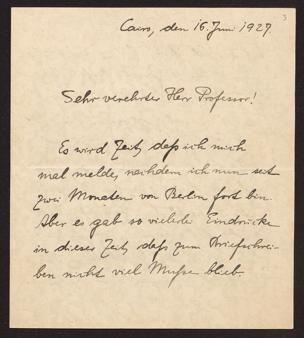 3
Cairo, den 16. Juni 1927.
Sehr verehrter Herr Professor!
Es wird Zeit, daß ich mich
mal melde, nachdem ich nun seit
zwei Monaten von Berlin fort bin.
Aber es gab so vielerlei Eindrücke
in dieser Zeit, daß zum Briefschrei-
ben nicht viel Muße blieb.